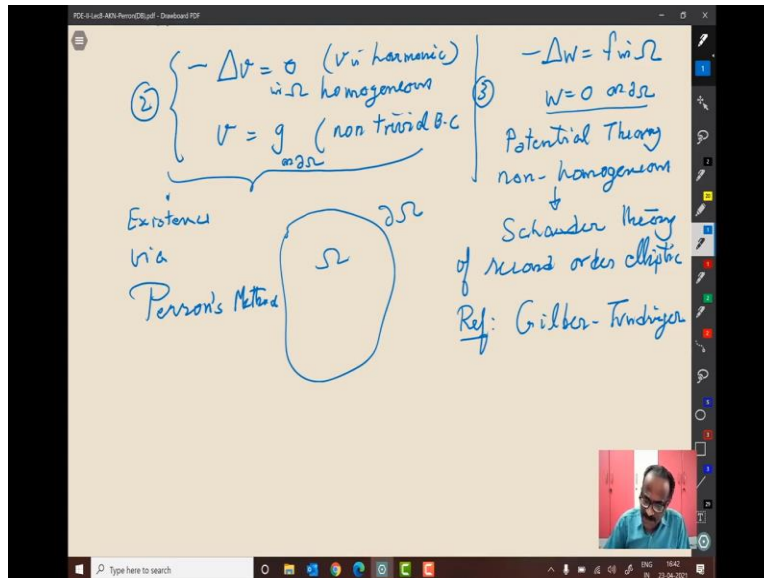 PDE-II-Lec8-AKN-Perron(DB).pdf - Drawboard PDF
② { - Δv = 0 (v is harmonic)
in Ω homogeneous
v = g (non trivial B.C
on ∂Ω
Existence
via
Perron's Method
Ω
∂Ω
③ -Δw = f in Ω
w = 0 on ∂Ω
Potential Theory
non-homogeneous
↓
Schauder Theory
of second order elliptic
Ref: Gilber-Trudinger
Type here to search
ENG
IN
16:42
23-04-2021